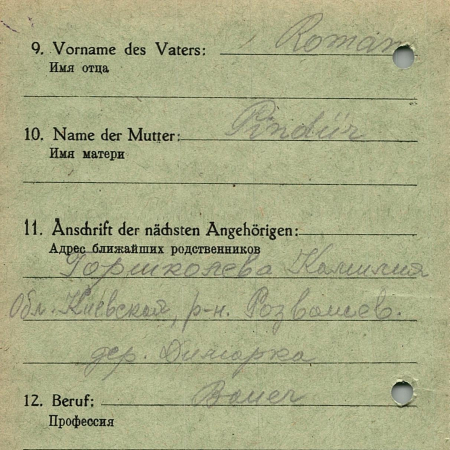 9. Vorname des Vaters: Roman
Имя отца
10. Name der Mutter: Pindür
Имя матери
11. Anschrift der nächsten Angehörigen:
Адрес ближайших родственников
Горшколева Камилия
Обл. Киевской, р-н. Розважев.
дер. Димарка
12. Beruf: Bauer
Профессия